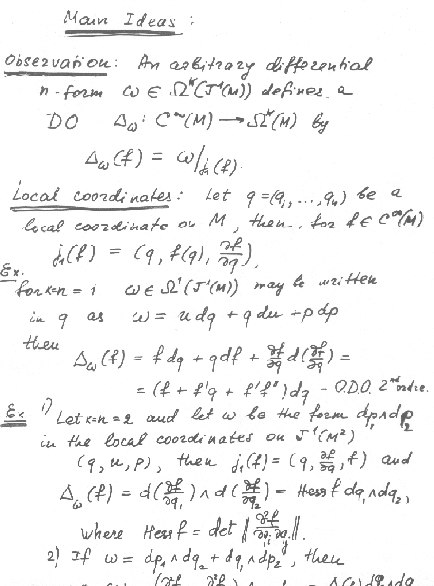 Main Ideas :
Observation: An arbitrary differential
n-form ω ∈ Ωᵏ(J¹(M)) defines a
DO Δ_ω : C^∞(M) → Ωᵏ(M) by
Δ_ω(f) = ω|_{j₁(f)}.
Local coordinates: Let q = (q₁, ..., qₙ) be a
local coordinate on M, then.. for f ∈ C^∞(M)
j₁(f) = (q, f(q), ∂f/∂q),
Ex.
for k=n=1 ω ∈ Ω¹(J¹(M)) may be written
in q as ω = u dq + q du + p dp
then
Δ_ω(f) = f dq + q df + ∂f/∂q d(∂f/∂q) =
= (f + f'q + f'f'')dq - O.D.O. 2nd ordre.
Ex 1) Let k=n=2 and let ω be the form dp₁∧dp₂
in the local coordinates on J¹(M²)
(q, u, p), then j₁(f) = (q, ∂f/∂q, f) and
Δ_ω(f) = d(∂f/∂q₁) ∧ d(∂f/∂q₂) = Hess f dq₁∧dq₂,
where Hess f = det ‖ ∂²f/∂qᵢ∂qⱼ ‖.
2) If ω = dp₁∧dq₂ + dq₁∧dp₂, then